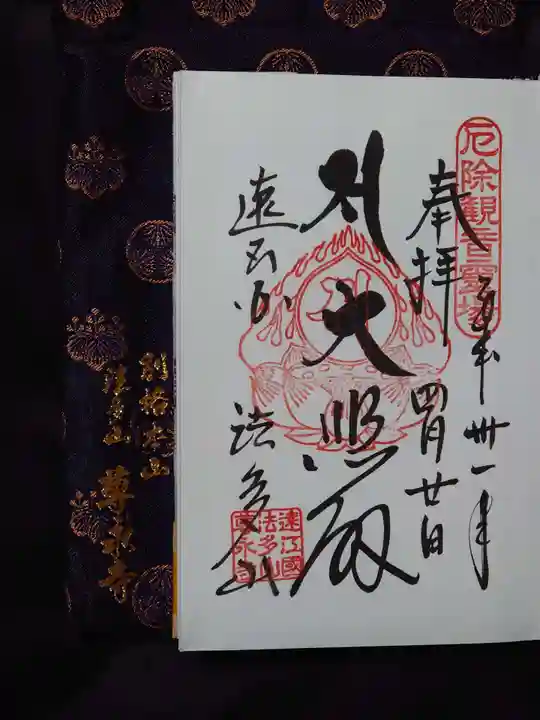 厄除観音霊場
平成卅一年
奉拝
四月廿日
大悲殿
遠州 法多山
遠江國
法多山
尊永寺
別格本山
法多山 尊永寺